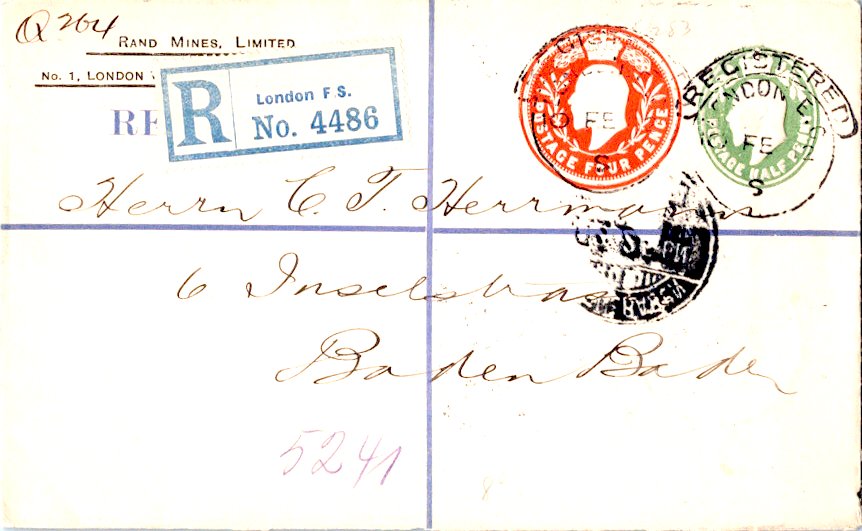 Q 264
RAND MINES, LIMITED
No. 1, LONDON
RE
R
London F.S.
No. 4486
POSTAGE FOUR PENCE
POSTAGE HALF PENNY
REGISTERED
LONDON E.C.
FE
FE
S
S
Herrn C. T. Herrmann
6 Inselstrasse
Baden Baden
5241